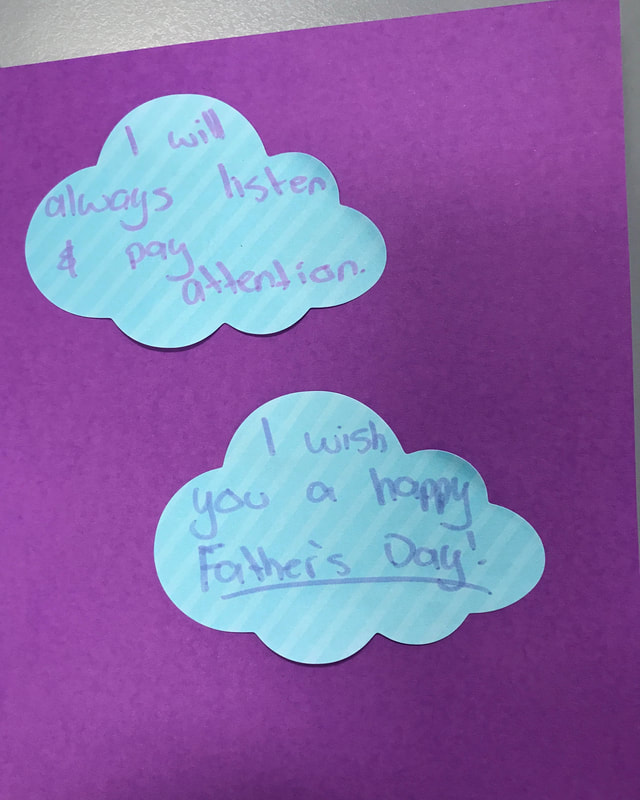 I will
always listen
& pay
attention.
I wish
you a happy
Father's Day!